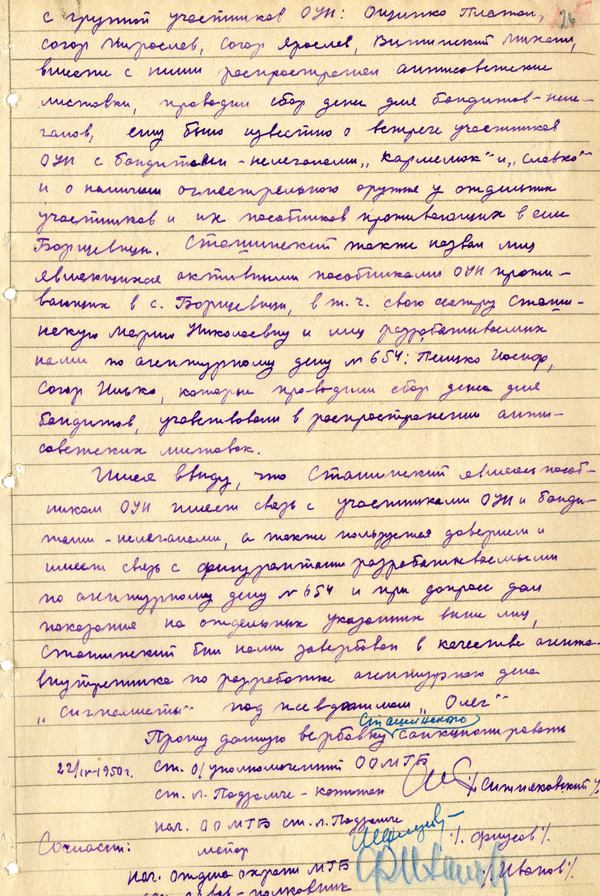 26
с группой участников ОУН: Опришко Платон,
Согор Мирослав, Согор Ярослав, Витинский Михаил,
вместе с ними распространял антисоветские
листовки, проводил сбор денег для бандитов-неле-
галов, ему было известно о встрече участников
ОУН с бандитами - нелегалами „Кармелюк“ и „Славко“
и о наличии огнестрельного оружия у отдельных
участников и их пособников проживающих в селе
Борщевичи. Сташинский также назвал лиц
являющихся активными пособниками ОУН прожи-
вающих в с. Борщевичи, в т.ч. свою сестру Сташи-
нскую Марию Николаевну и лиц разрабатываемых
нами по агентурному делу № 654: Пецико Иосиф,
Согор Илько, которые проводили сбор денег для
бандитов, участвовали в распространении анти-
советских листовок.
Имея ввиду, что Сташинский являясь пособ-
ником ОУН имеет связь с участниками ОУН и банди-
тами - нелегалами, а также пользуется доверием и
имеет связь с фигурантами разрабатываемыми
по агентурному делу № 654 и при допросе дал
показания на отдельных указанных выше лиц,
Сташинский был нами завербован в качестве агента-
внутренника по разработке агентурного дела
„Сигналисты“ под псевдонимом „Олег“
Прошу данную вербовку Сташинского санкционировать
22/IV-1950г. Ст. о/уполномоченный ООМГБ
ст. л. Подзамче - капитан /Ситняковский/
нач. ООМГБ ст. л. Подзамче
Согласен: майор /Фрусов/.
нач. отдела охраны МГБ /Иванов/.
полковник